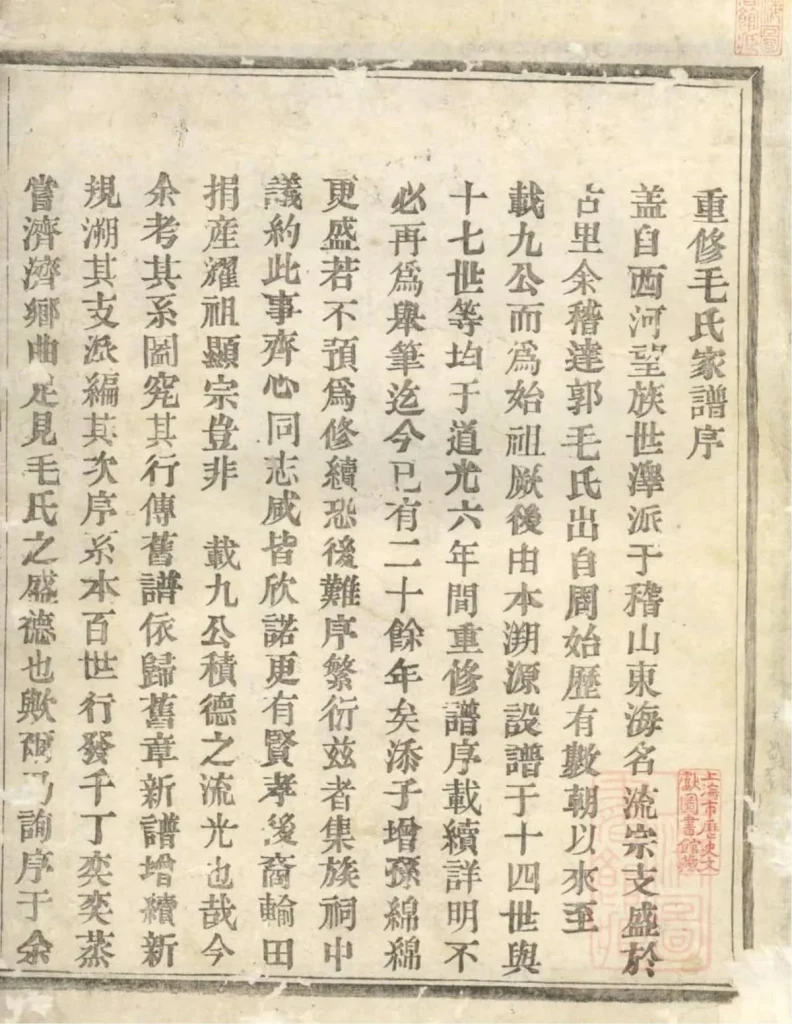 重修毛氏家譜序
蓋自西河望族世澤派于稽山東海名流宗支盛於
古里余稽達郭毛氏出自周始歷有數朝以來至
載九公而爲始祖厥後由本溯源設譜于十四世與
十七世等均于道光六年間重修譜序載續詳明不
必再爲舉筆迄今已有二十餘年矣添子增孫綿綿
更盛若不預爲修續恐後難序繁衍兹者集族祠中
議約此事齊心同志咸皆欣諾更有賢孝後裔輸田
捐産耀祖顯宗豈非 載九公積德之流光也哉今
余考其系圖究其行傳舊譜依歸舊章新譜增續新
規溯其支派編其次序系本百世行發千丁奕奕蒸
嘗濟濟鄉曲足見毛氏之盛德也歟爾乃詢序于余
上海市歷史文
獻圖書館藏